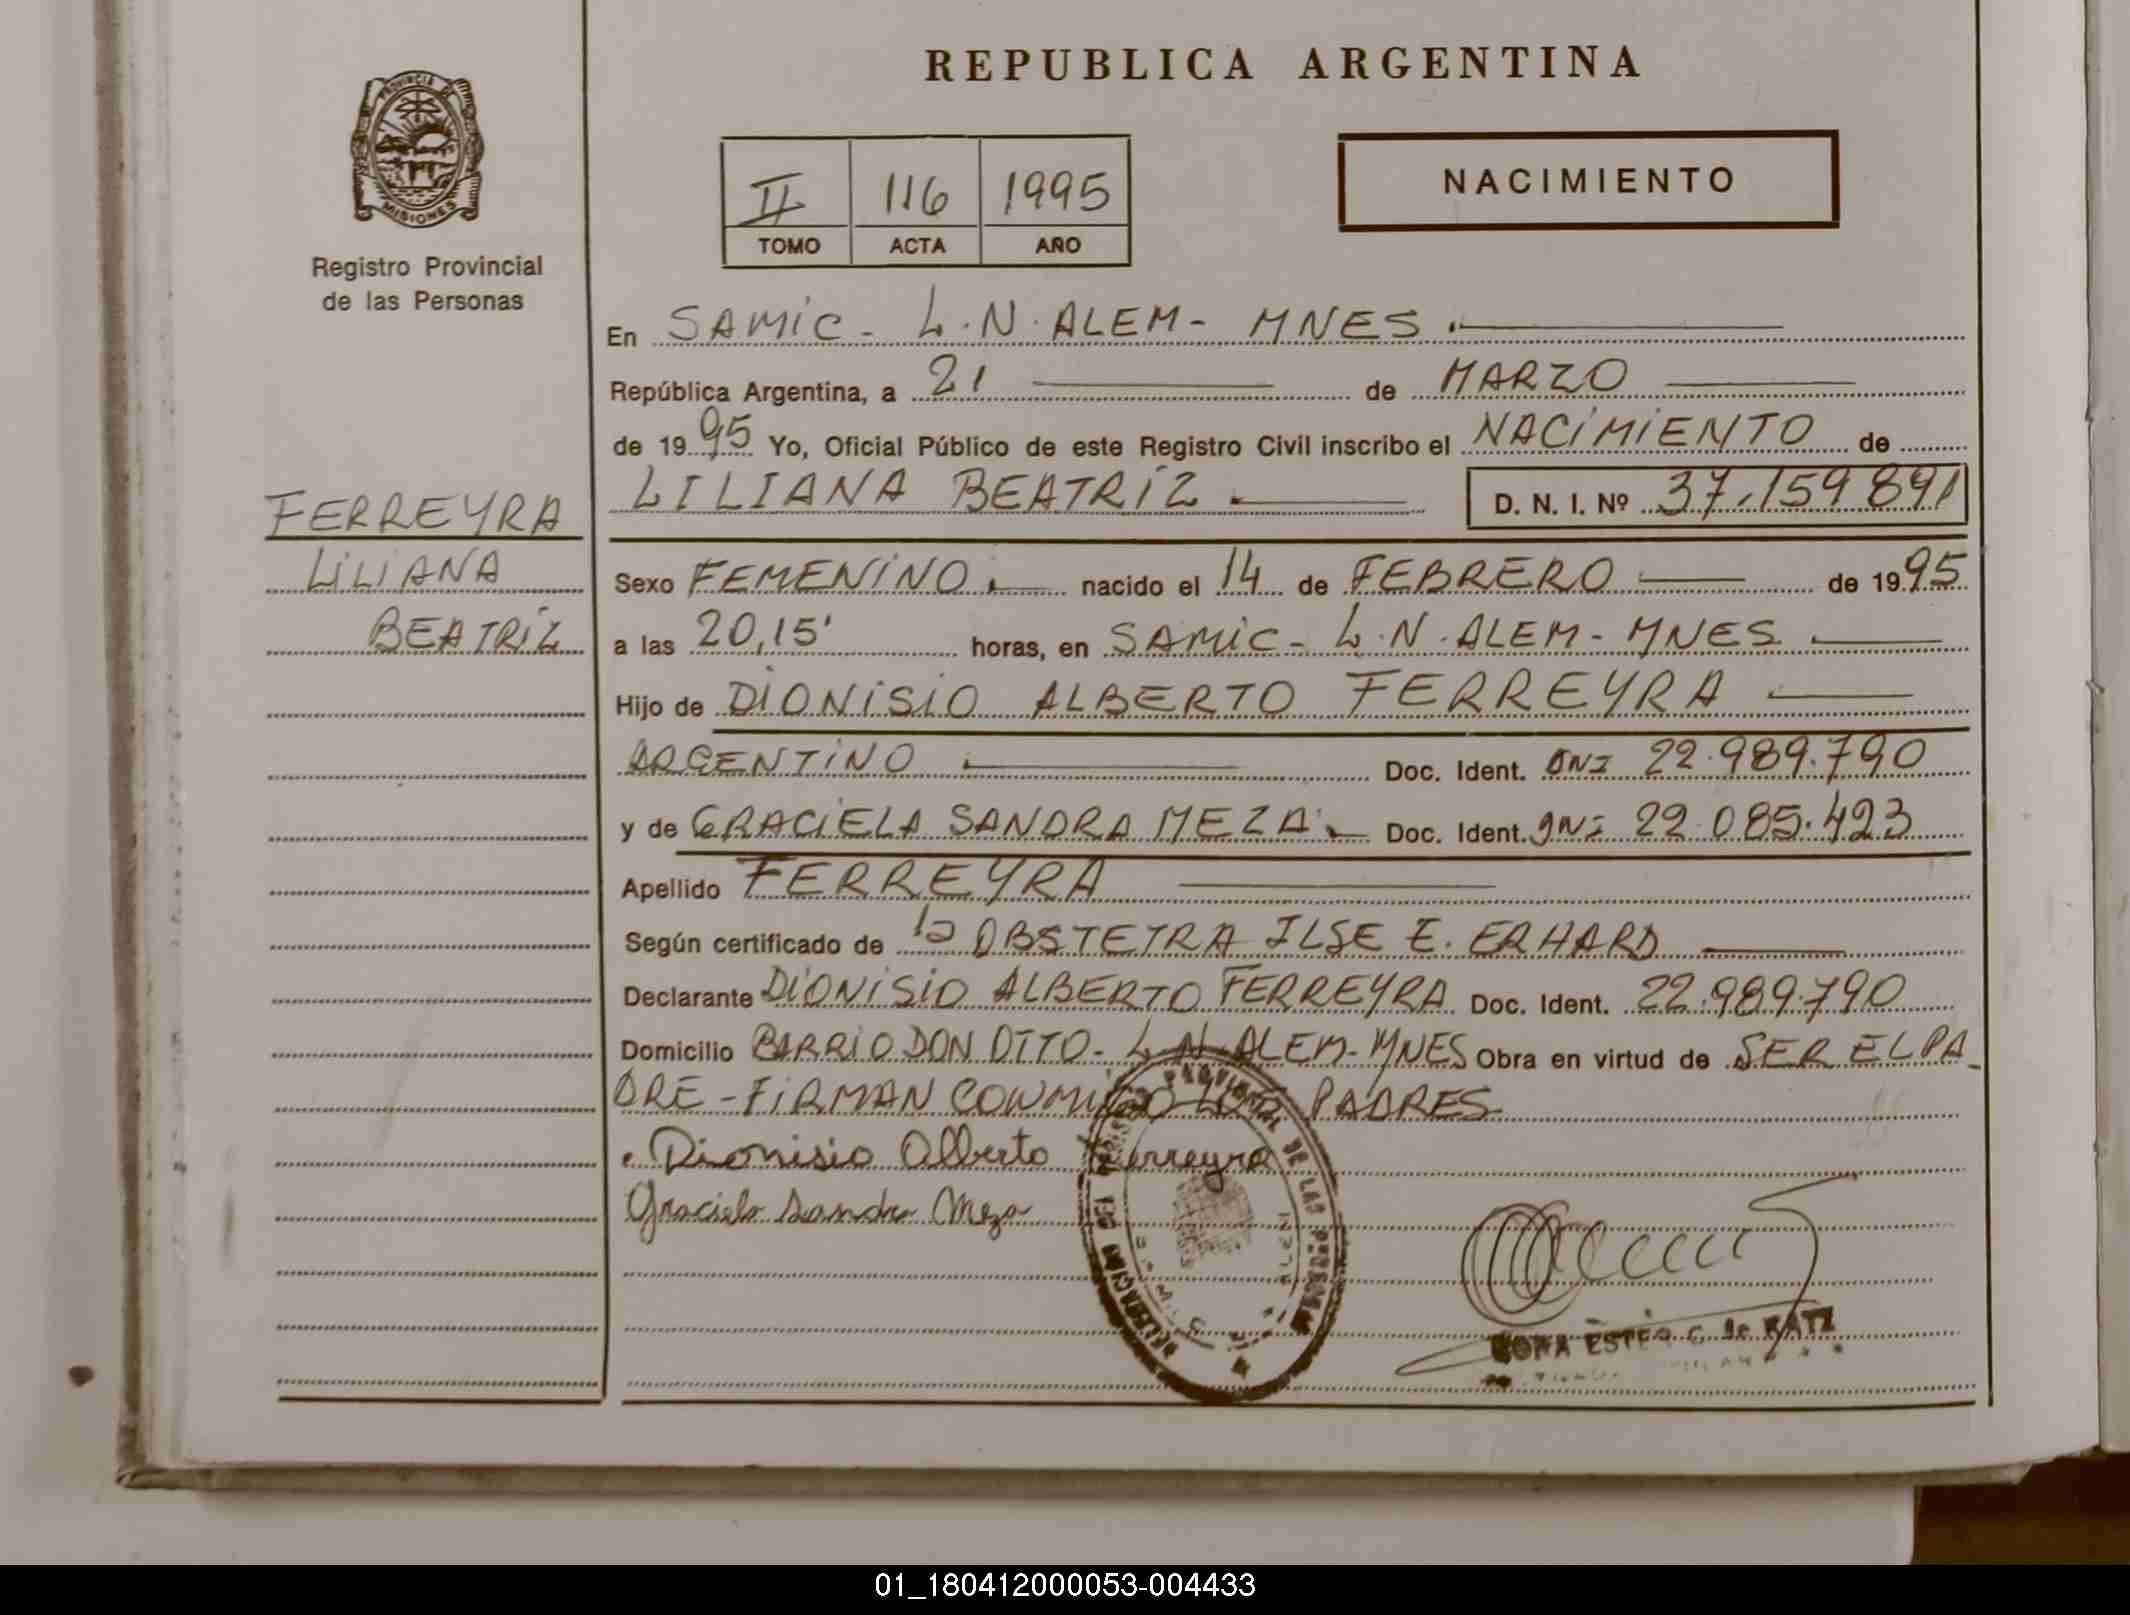 REPUBLICA ARGENTINA
PROVINCIA DE
MISIONES
Registro Provincial
de las Personas
II 116 1995
TOMO ACTA AÑO
NACIMIENTO
En SAMIC - L.N. ALEM - MNES.
República Argentina, a 21 de MARZO
de 1995 Yo, Oficial Público de este Registro Civil inscribo el NACIMIENTO de
LILIANA BEATRIZ. D. N. I. Nº 37.159891
FERREYRA
LILIANA
BEATRIZ
Sexo FEMENINO. nacido el 14 de FEBRERO de 1995
a las 20,15' horas, en SAMIC - L.N. ALEM - MNES
Hijo de DIONISIO ALBERTO FERREYRA
ARGENTINO Doc. Ident. DNI 22.989.790
y de GRACIELA SANDRA MEZA. Doc. Ident. DNI 22.085.423
Apellido FERREYRA
Según certificado de la OBSTETRA ILSE E. ERHARD
Declarante DIONISIO ALBERTO FERREYRA Doc. Ident. 22.989.790
Domicilio BARRIO DON OTTO - L.N. ALEM - MNES Obra en virtud de SER EL PA-
DRE - FIRMAN CONMIGO LOS PADRES
Dionisio Alberto Ferreyra
Graciela Sandra Meza
DE LAS PERSONAS
DELEGACION
DE RATZ
01_180412000053-004433